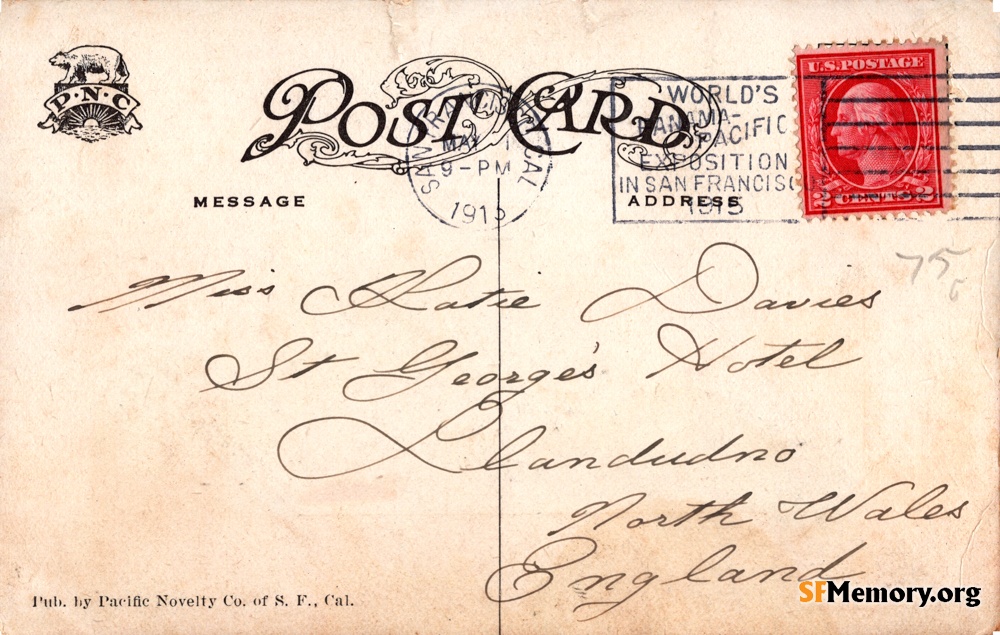 P·N·C
POST CARD
CAL
MAY
9-PM
1915
WORLD'S
PANAMA-
PACIFIC
EXPOSITION
IN SAN FRANCISC
1915
U.S. POSTAGE
2 CENTS 2
MESSAGE
ADDRESS
75
Miss Katie Davies
St George's Hotel
Llandudno
North Wales
England
Pub. by Pacific Novelty Co. of S. F., Cal.
SFMemory.org